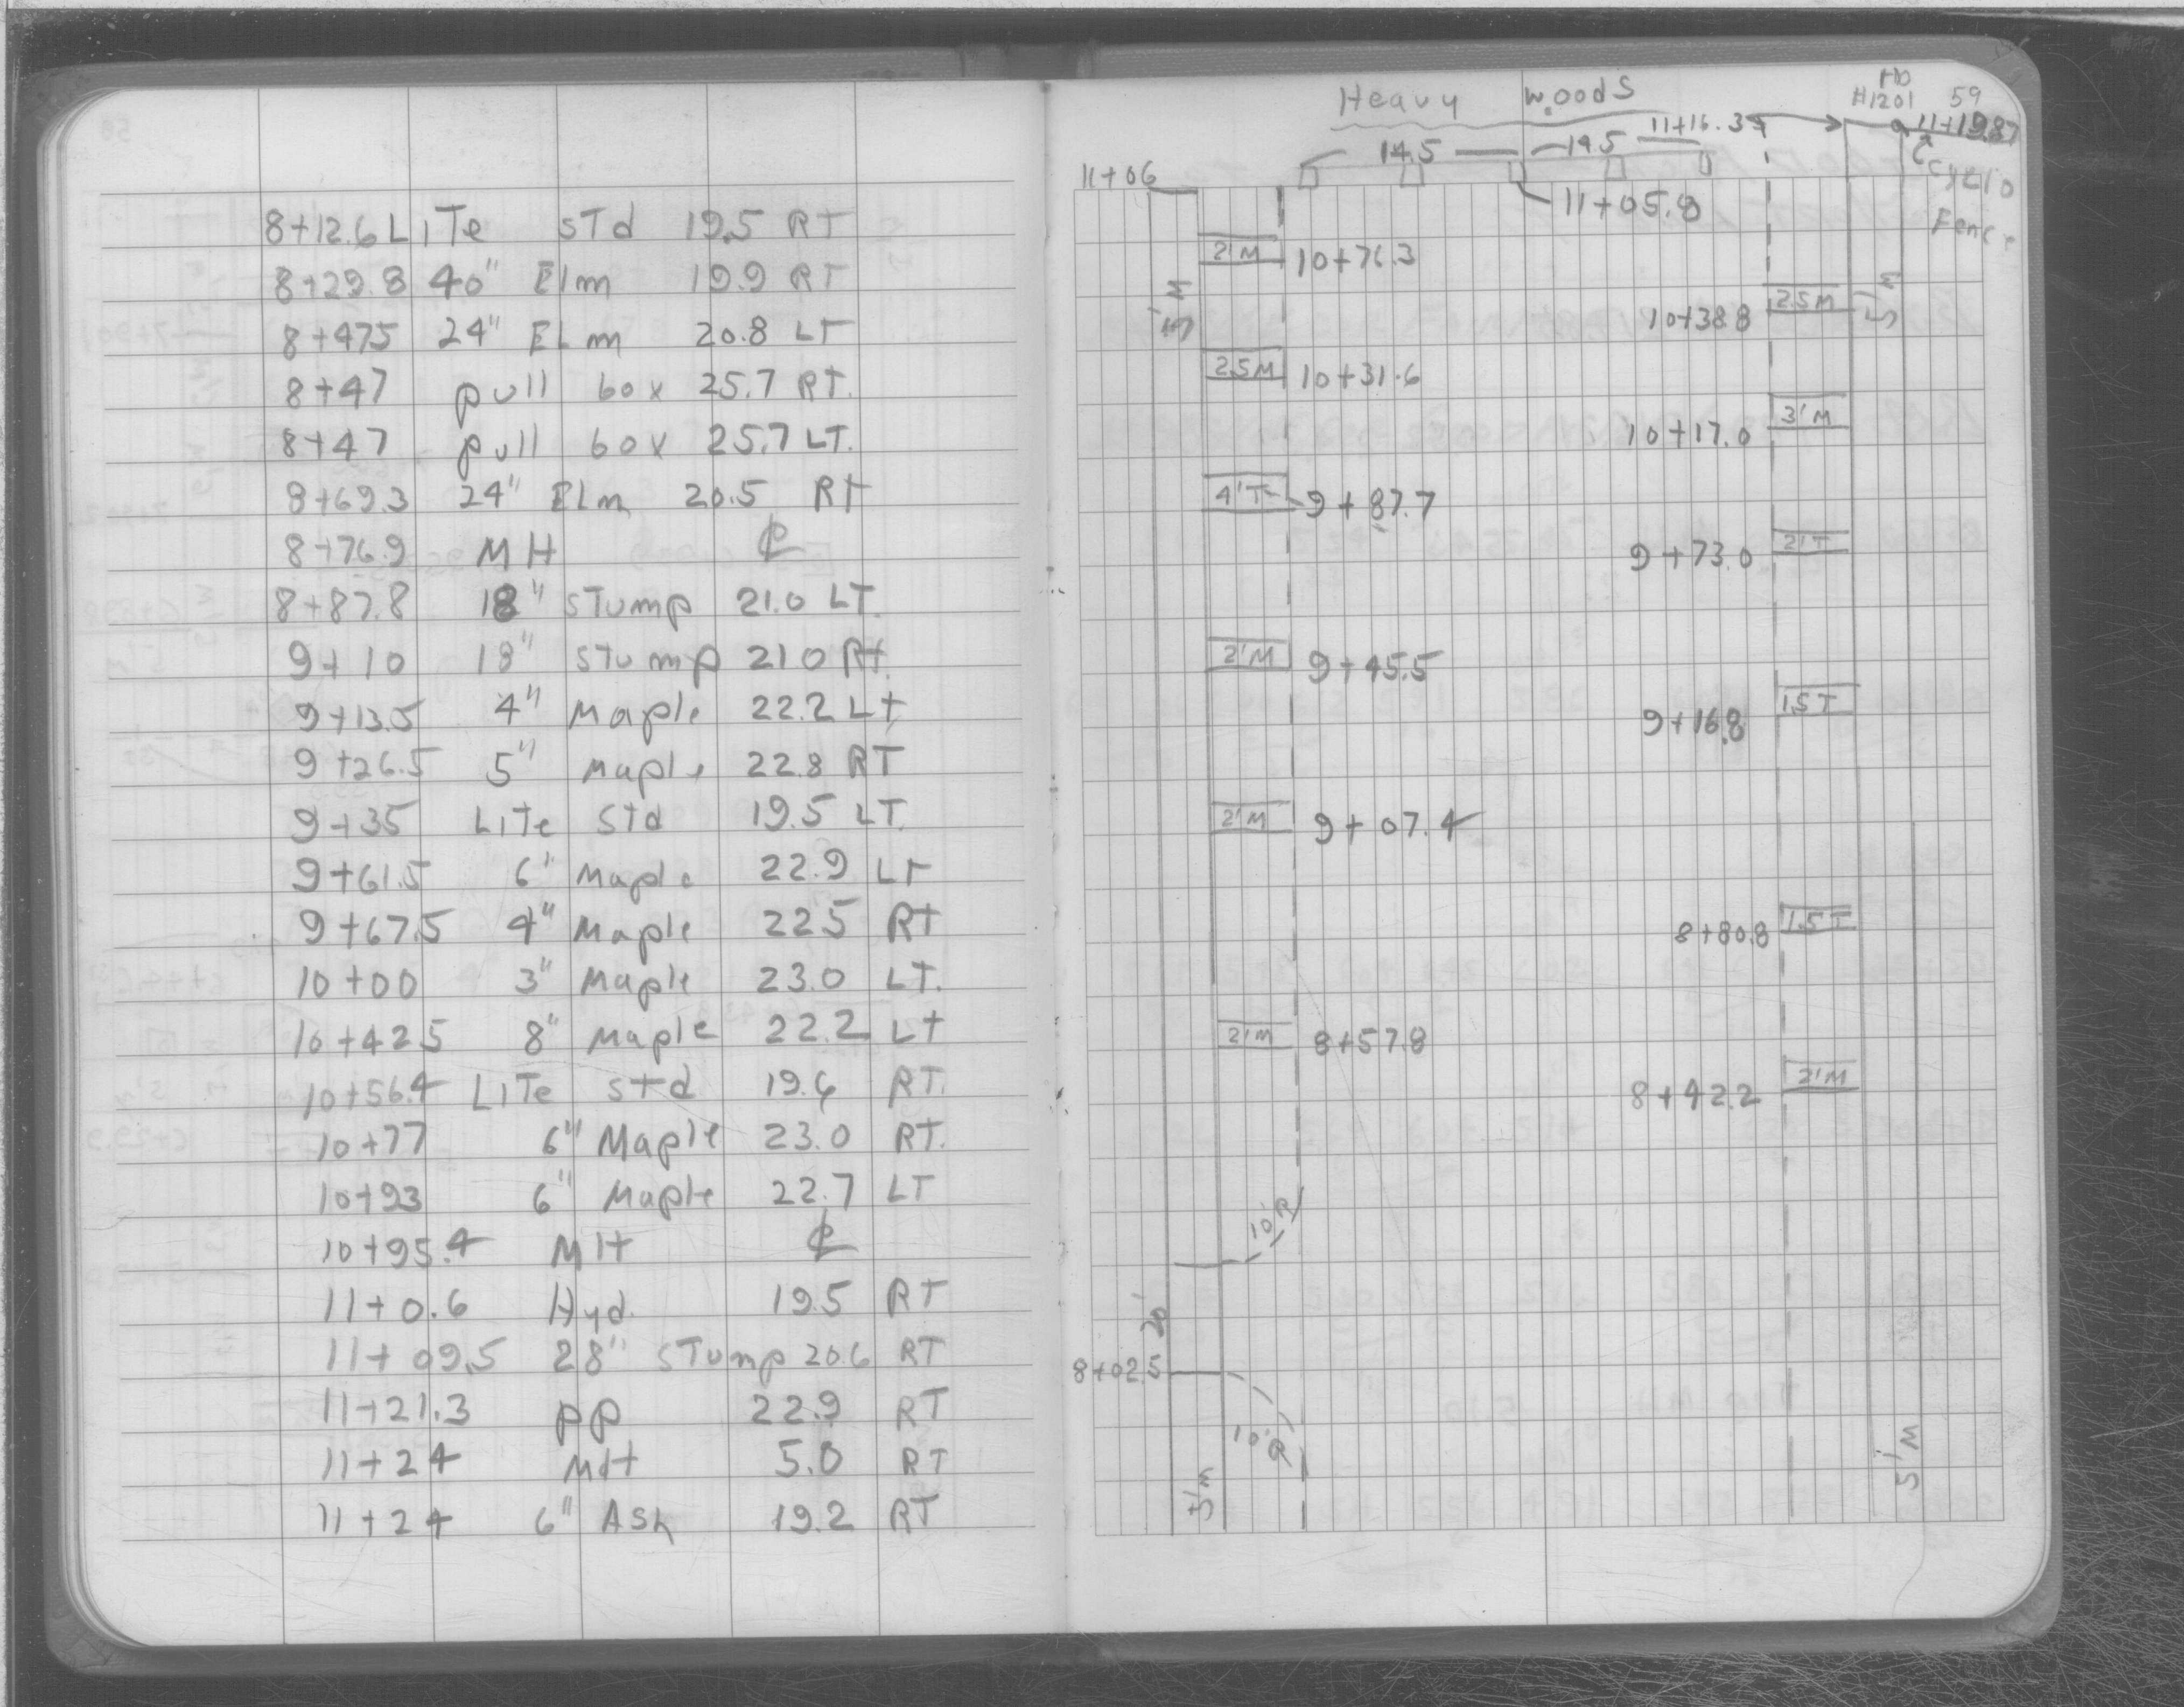 8+12.6 LiTe sTd 19.5 RT
8+29.8 40" Elm 19.9 RT
8+475 24" ELm 20.8 LT
8+47 pull box 25.7 RT.
8+47 pull box 25.7 LT.
8+69.3 24" ELm 20.5 RT
8+76.9 MH ℄
8+87.8 18" sTump 21.0 LT.
9+10 18" sTump 210 Rt.
9+13.5 4" Maple 22.2 Lt
9+26.5 5" Maple 22.8 RT
9+35 LiTe Std 19.5 LT.
9+61.5 6" Maple 22.9 LT
9+67.5 4" Maple 225 RT
10+00 3" Maple 23.0 LT.
10+425 8" Maple 22.2 Lt
10+56.4 LiTe std 19.6 RT.
10+77 6" Maple 23.0 RT.
10+93 6" Maple 22.7 LT
10+95.4 MH ℄
11+0.6 Hyd. 19.5 RT
11+09.5 28" sTump 20.6 RT
11+21.3 pp 22.9 RT
11+24 MH 5.0 RT
11+24 6" Ash 19.2 RT
Heavy Woods
H#1201 59
11+16.3 11+19.87
14.5 14.5
11+06
Cyclo
Fence
11+05.8
2'M 10+76.3
5'M
10+38.8 2.5M 5'M
2.5M 10+31.6
10+17.0 3'M
4'T 9+87.7
9+73.0 2'T
2'M 9+45.5
9+16.8 1.5T
2'M 9+07.4
8+80.8 1.5T
2'M 8+57.8
8+42.2 2'M
10'R
20'
8+02.5
10'R
5'M
5'M